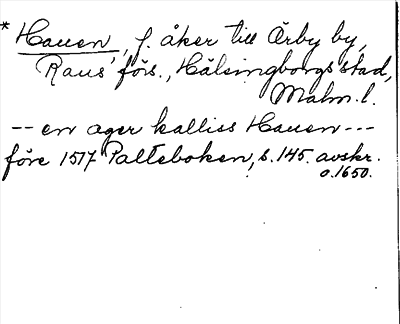 * Hauen, f. åker till Örby by,
Raus förs., Hälsingborgs stad,
Malm. l.
-- en ager kalliss Hauen ---
före 1517 Palteboken, s. 145. avskr.
o. 1650.